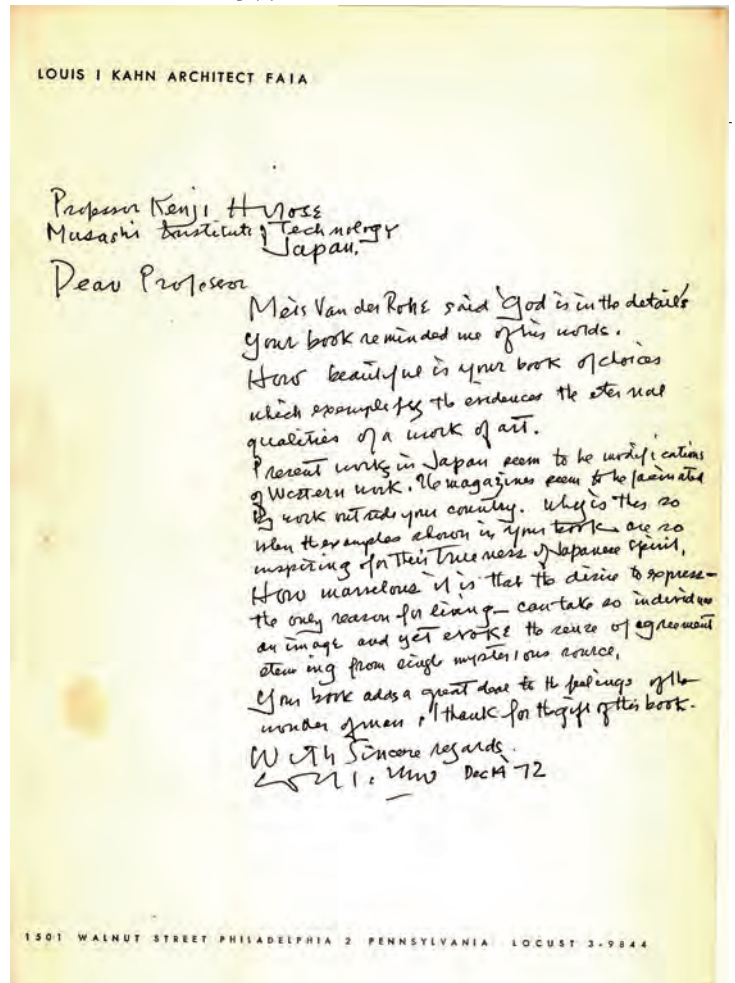 LOUIS I KAHN ARCHITECT FAIA
Professor Kenji Hirose
Musashi Institute of Technology
Japan.
Dear Professor
Meis Van der Rohe said 'God is in the details
Your book reminded me of his words.
How beautiful is your book of choices
which exemplifys the evidences the eternal
qualities of a work of art.
Present works in Japan seem to be modifications
of Western work. The magazines seem to be fascinated
by work outside your country. Why is this so
when the examples shown in your book are so
inspiring for their trueness of Japanese spirit.
How marvelous it is that the desire to express—
the only reason for living— can take so individual
an image and yet evoke the sense of agreement
steming from single mysterious source.
Your book adds a great deal to the feelings of the
wonder of man. I thank for the gift of this book.
With Sincere regards.
Dec 14 '72
1501 WALNUT STREET PHILADELPHIA 2 PENNSYLVANIA LOCUST 3-9844